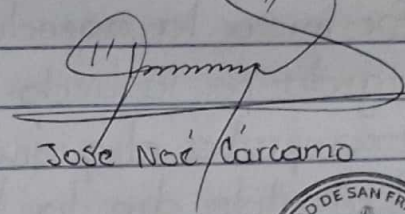 José Noé Cárcamo
O DE SAN FR